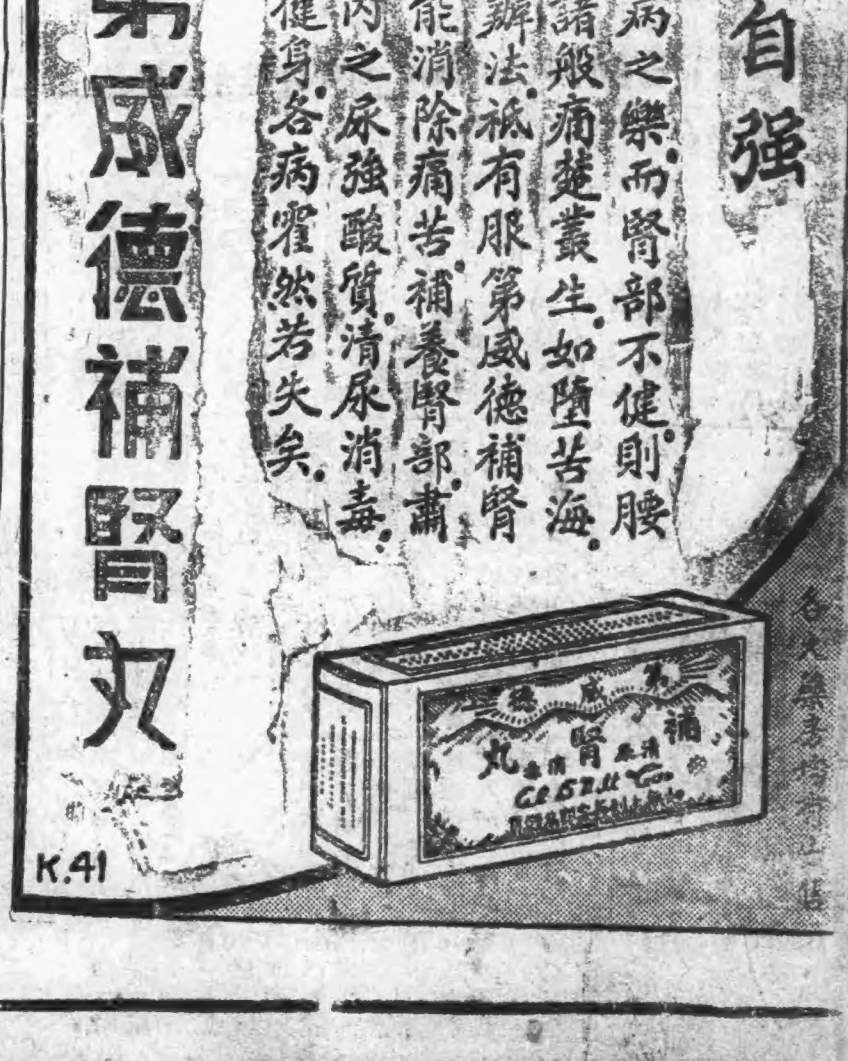 自强
病之樂。而腎部不健。則腰
諸般痛楚叢生。如墮苦海。
辦法。祗有服第威德補腎
能消除痛苦。補養腎部。肅
内之尿強酸質。清尿消毒。
健身。各病霍然若失矣。
第威德補腎丸
K.41
第威德
補腎丸
清尿消毒
各大藥房均有出售